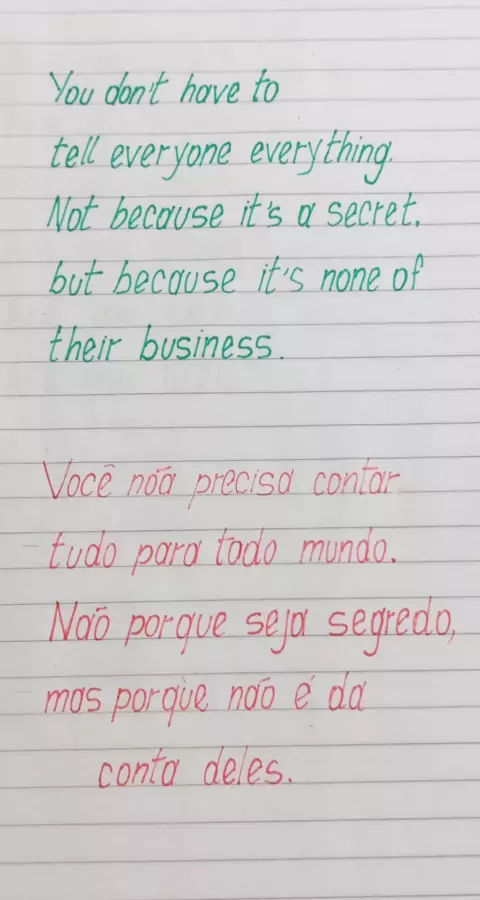 You don't have to
tell everyone everything.
Not because it's a secret.
but because it's none of
their business.
Você nõa precisa contar
tudo para todo mundo.
Naõ porque seja segredo,
mas porque naõ é da
conta deles.